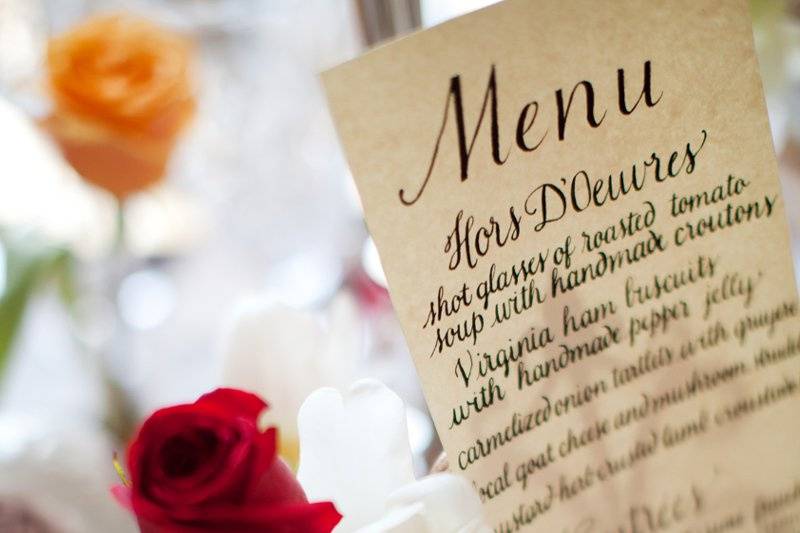 Menu
Hors D'Oeuvres
shot glasses of roasted tomato
soup with handmade croutons
Virginia ham buscuits
with handmade pepper jelly
carmelized onion tartlets with gruyere
local goat cheese and mushroom
mustard herb crusted lamb